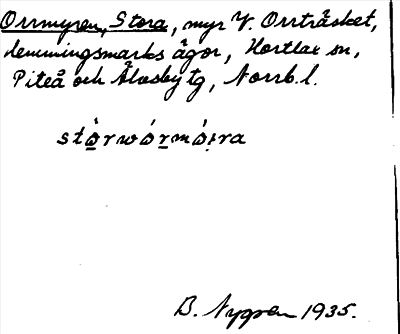 Orrmyren, Stora, myr V. Orrträsket,
Lemmingsmarks ägor, Hortlax sn,
Piteå och Älvsby tg, Norrb. l.
B. Nygren 1935.